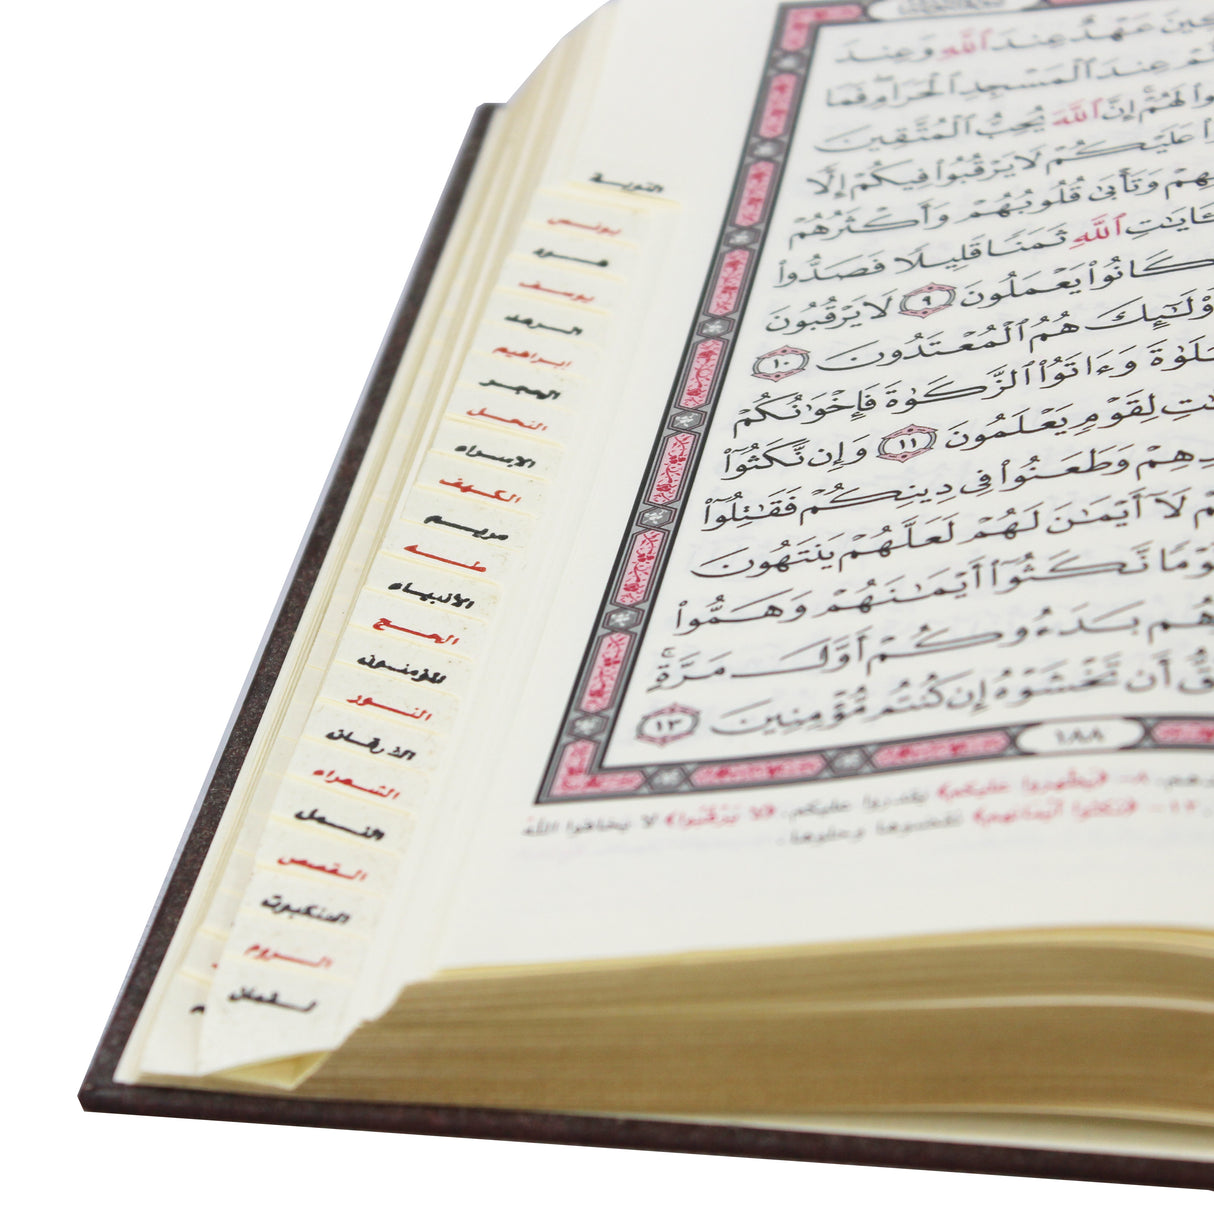 ـكِينَ عَهْدٌ عِندَ ٱللَّهِ وَعِندَ
ـتُّمْ عِندَ ٱلْمَسْجِدِ ٱلْحَرَامِ فَمَا
ـوا۟ لَهُمْ إِنَّ ٱللَّهَ يُحِبُّ ٱلْمُتَّقِينَ
ـوا۟ عَلَيْكُمْ لَا يَرْقُبُوا۟ فِيكُمْ إِلًّا
ـهِهِمْ وَتَأْبَىٰ قُلُوبُهُمْ وَأَكْثَرُهُمْ
ـَٔايَٰتِ ٱللَّهِ ثَمَنًا قَلِيلًا فَصَدُّوا۟
كَانُوا۟ يَعْمَلُونَ ٩ لَا يَرْقُبُونَ
وْلَٰٓئِكَ هُمُ ٱلْمُعْتَدُونَ ١٠
ـلَوٰةَ وَءَاتَوُا۟ ٱلزَّكَوٰةَ فَإِخْوَٰنُكُمْ
ـٰتِ لِقَوْمٍ يَعْلَمُونَ ١١ وَإِن نَّكَثُوٓا۟
ـدِهِمْ وَطَعَنُوا۟ فِى دِينِكُمْ فَقَٰتِلُوٓا۟
ـمْ لَآ أَيْمَٰنَ لَهُمْ لَعَلَّهُمْ يَنتَهُونَ
ـوْمًا نَّكَثُوٓا۟ أَيْمَٰنَهُمْ وَهَمُّوا۟
ـهُم بَدَءُوكُمْ أَوَّلَ مَرَّةٍ
ـقُّ أَن تَخْشَوْهُ إِن كُنتُم مُّؤْمِنِينَ ١٣
١٨٨
٨- ﴿يَظْهَرُوا عليكم﴾ يقدروا عليكم. ﴿لا يَرْقُبُوا﴾ لا يخافوا اللهَ
١٢- ﴿نكثوا أيمانهم﴾ نقضوها وحلوها.
التوبة
يونس
هود
يوسف
الرعد
إبراهيم
الحجر
النحل
الإسراء
الكهف
مريم
طه
الأنبياء
الحج
المؤمنون
النور
الفرقان
الشعراء
النمل
القصص
العنكبوت
الروم
لقمان